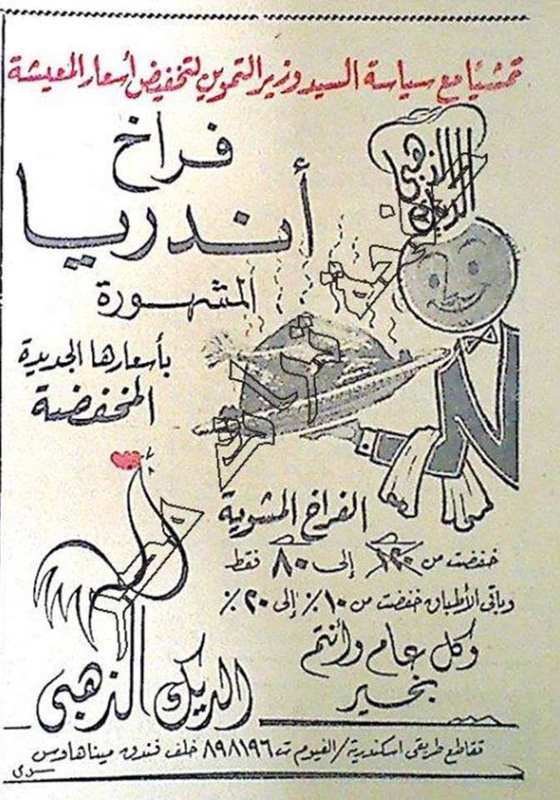 تمشيًا مع سياسة السيد وزير التموين لتخفيض أسعار المعيشة
فراخ
أندريا
المشهورة
بأسعارها الجديدة
المخفضة
الديك الذهبى
الفراخ المشوية
خفضت من ١٢٠ إلى ٨٠ فقط
وباقى الأطباق خفضت من ١٠٪ إلى ٢٠٪
وكل عام وأنتم
بخير
الديك الذهبى
تقاطع طريقى اسكندرية / الفيوم ت ٨٩٨١٩٦ خلف فندق ميناهاوس